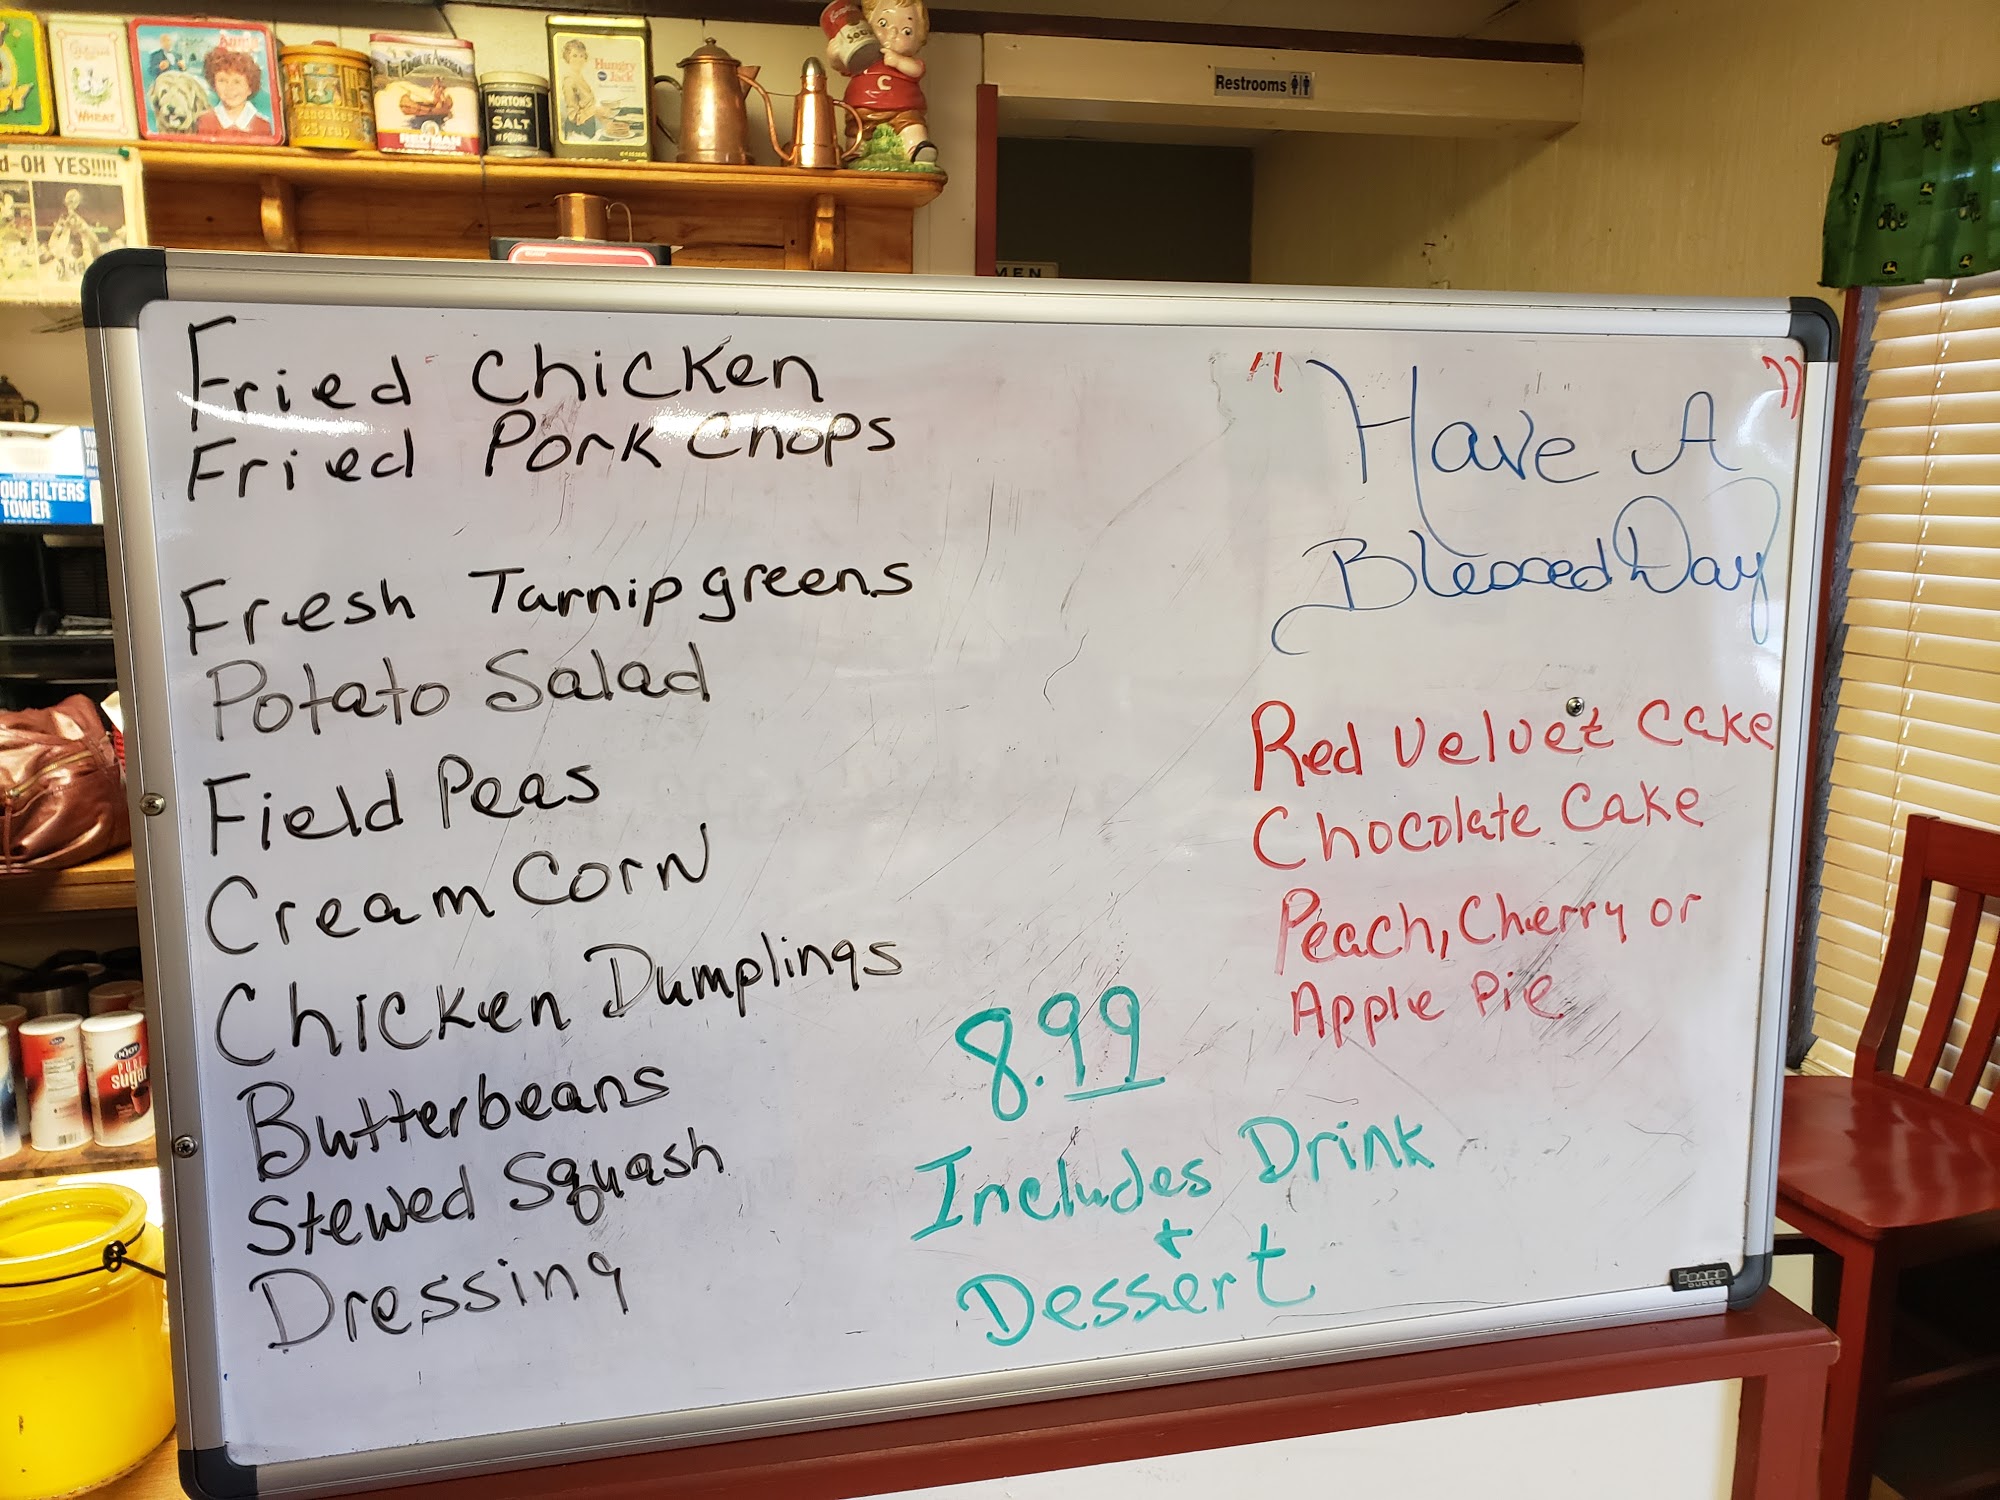 Annie
WHEAT
Pancakes
& Syrup
THE FLAVOR OF AMERICA
REDMAN
MORTON'S
SALT
Hungry
Jack
C
Restrooms
d-OH YES!!!!!
MEN
OUR FILTERS
TOWER
NJOY
PURE
sugar
Fried Chicken
Fried Pork Chops
Fresh Turnip greens
Potato Salad
Field Peas
Cream Corn
Chicken Dumplings
Butterbeans
Stewed Squash
Dressing
"Have A"
Blessed Day
Red Velvet Cake
Chocolate Cake
Peach, Cherry or
Apple Pie
8.99
Includes Drink
+
Dessert
BOARD
DUDES